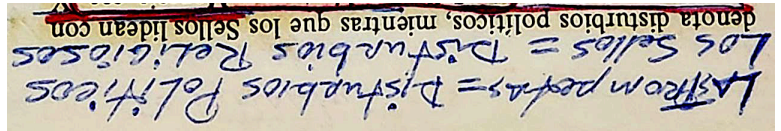 LAS TROMpetas = Disturbios Políticos
Los Sellos = Disturbios Religiosos
denota disturbios políticos, mientras que los Sellos lidean con